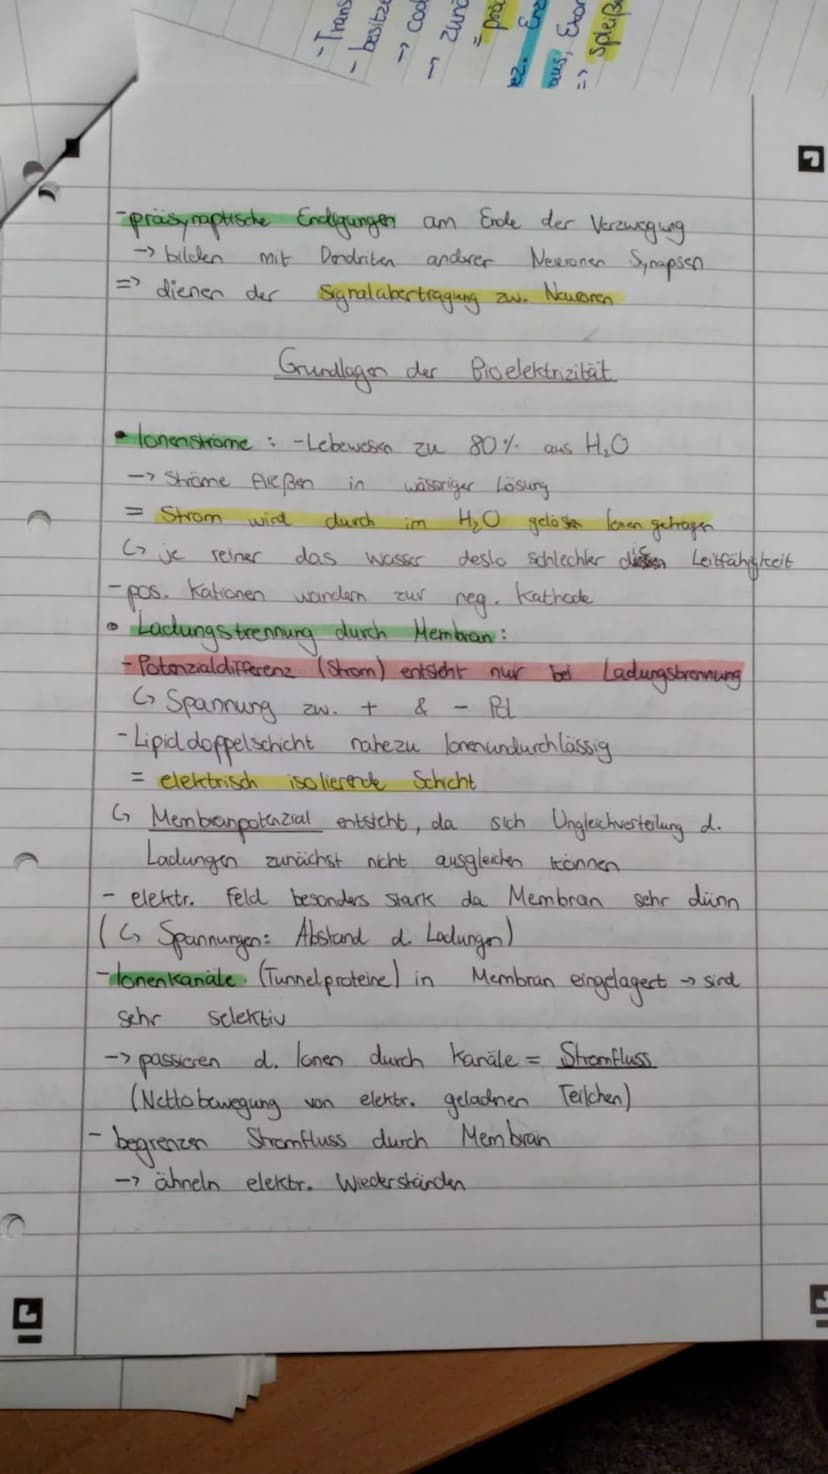 - Trans
- besitze
→ Cod
→ zurü
= prä
ez. Enz
aus, Exon
=> Spleiße
- präsynaptische Endigungen am Ende der Verzweigung
→ bilden mit Dendriten anderer Neuronen Synapsen
=> dienen der Signalübertragung zw. Neuronen
Grundlagen der Bioelektrizität
• Ionenströme : - Lebewesen zu 80% aus H₂O
→ Ströme fließen in wässriger Lösung
= Strom wird durch im H₂O gelösten Ionen getragen
↳ je reiner das Wasser desto schlechter Leitfähigkeit
- pos. Kationen wandern zur neg. Kathode
• Ladungstrennung durch Membran :
- Potenzialdifferenz (Strom) entsteht nur bei Ladungstrennung
↳ Spannung zw. + & - Pol
- Lipiddoppelschicht nahezu Ionenundurchlässig
= elektrisch isolierende Schicht
↳ Membranpotenzial entsteht, da sich Ungleichverteilung d.
Ladungen zunächst nicht ausgleichen können
- elektr. Feld besonders stark da Membran sehr dünn
(↳ Spannungen: Abstand d. Ladungen)
- Ionenkanäle (Tunnelproteine) in Membran eingelagert → sind
sehr selektiv
→ passieren d. Ionen durch Kanäle = Stromfluss
(Nettobewegung von elektr. geladnen Teilchen)
- begrenzen Stromfluss durch Membran
→ ähneln elektr. Wiederständen